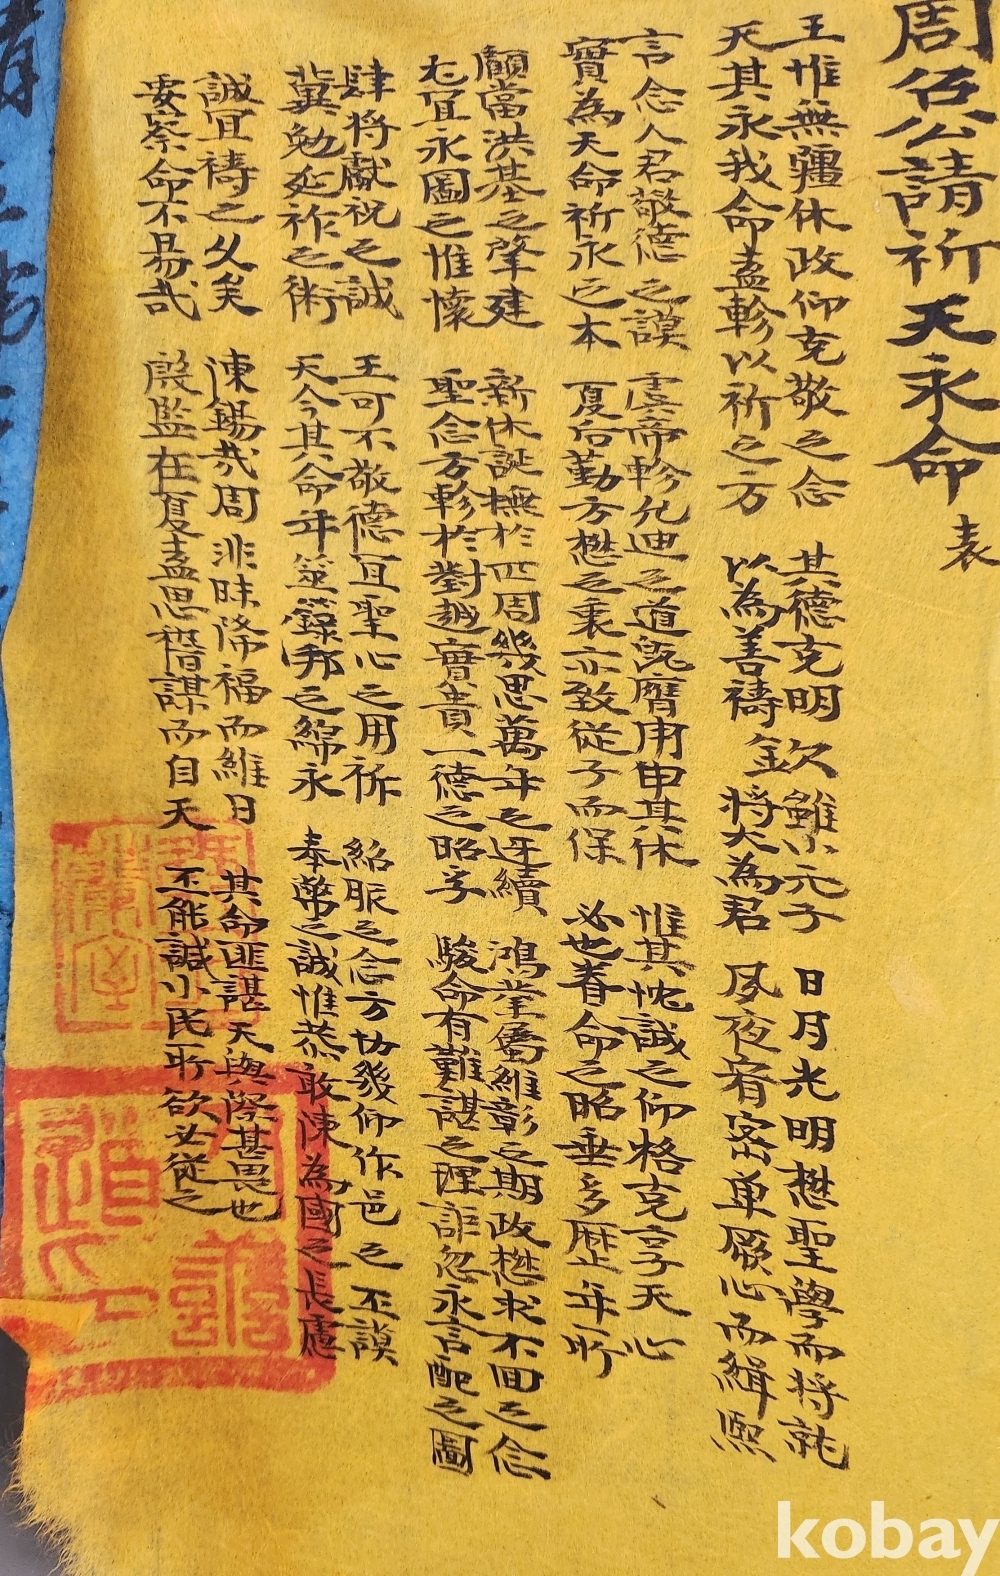 周召公請祈天永命 表
王惟無疆休政仰克敬之念 其德克明欽雖小元子 日月光明懋聖學而將就
天其永我命盍軫以祈之方 以為善禱 將大為君 夙夜宥密單厥心而緝熙
言念人君敬德之謨 虞帝軫允迪之道既膺用申其休 惟其忱誠之仰格克享天心
實為天命祈永之本 夏后勤方懋之裏亦致從子而保 必也眷命之昭垂多歷年所
顧當洪基之肇建 新休誕撫於四周幾思萬年之迓續 鴻堂屬維彰之期政懋求不回之念
尤宜永圖之惟懷 聖念方軫於對越實貴一德之昭孚 駿命有難諶之理詎忽永言配之圖
肆將獻祝之誠 王可不敬德宜聖心之用祈 紹服之念方切幾仰作邑之丕謨
冀勉延祚之術 天今其命年筮籙邦之綿永 奉幣之誠惟恭敢陳為國之長慮
誠宜禱之久矣 陳錫哉周非昧降福而維日 其命匪諶天與際甚畏也
要察命不易哉 殷監在夏盍思稽謀而自天 丕能諴小民所欲必從之
kobay